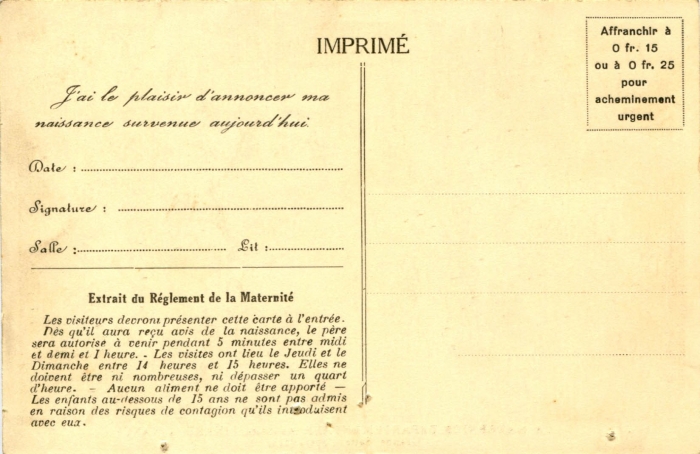 IMPRIMÉ
Affranchir à
0 fr. 15
ou à 0 fr. 25
pour
acheminement
urgent
J'ai le plaisir d'annoncer ma
naissance survenue aujourd'hui.
Date :
Signature :
Salle : Lit :
Extrait du Réglement de la Maternité
Les visiteurs devront présenter cette carte à l'entrée.
Dès qu'il aura reçu avis de la naissance, le père
sera autorise à venir pendant 5 minutes entre midi
et demi et 1 heure. - Les visites ont lieu le Jeudi et le
Dimanche entre 14 heures et 15 heures. Elles ne
doivent être ni nombreuses, ni dépasser un quart
d'heure. - Aucun aliment ne doit être apporté —
Les enfants au-dessous de 15 ans ne sont pas admis
en raison des risques de contagion qu'ils introduisent
avec eux.